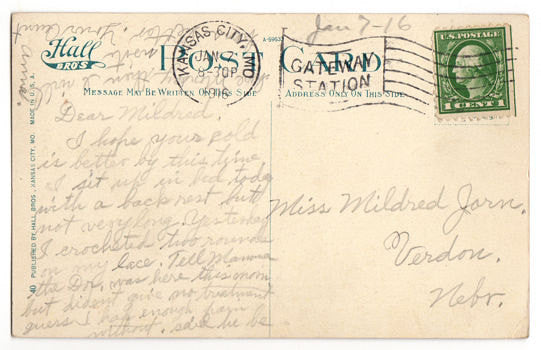 Jan 7-16
Hall
BRO'S
POST CARD
A-5953
KANSAS CITY, MO.
JAN
8-30P
1916
GATEWAY
STATION
U.S. POSTAGE
1 CENT 1
MESSAGE MAY BE WRITTEN ON THIS SIDE
ADDRESS ONLY ON THIS SIDE
40 PUBLISHED BY HALL BROS., KANSAS CITY, MO. MADE IN U.S.A.
Dear Mildred.
I hope your cold
is better by this time.
I sit up in bed today
with a back rest but
not very long. Yesterday
I crocheted two rounds
on my lace. Tell Mamma
the Dor. was here this morn
but dident give no treatment
guess I had enough pain
without. said he be
Your Aunt
Anna.
Miss Mildred Jorn.
Verdon.
Nebr.